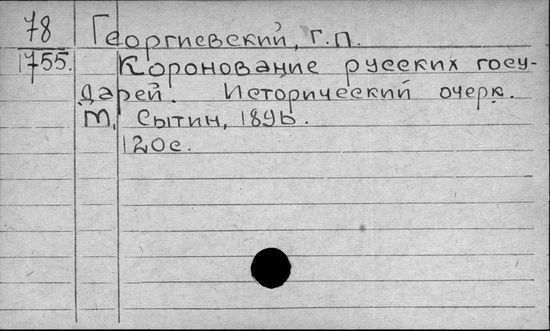 78 Георгиевский, Г.П.
1755. Коронование русских госу-
дарей. Исторический очерк.
М, Сытин, 1896.
120с.